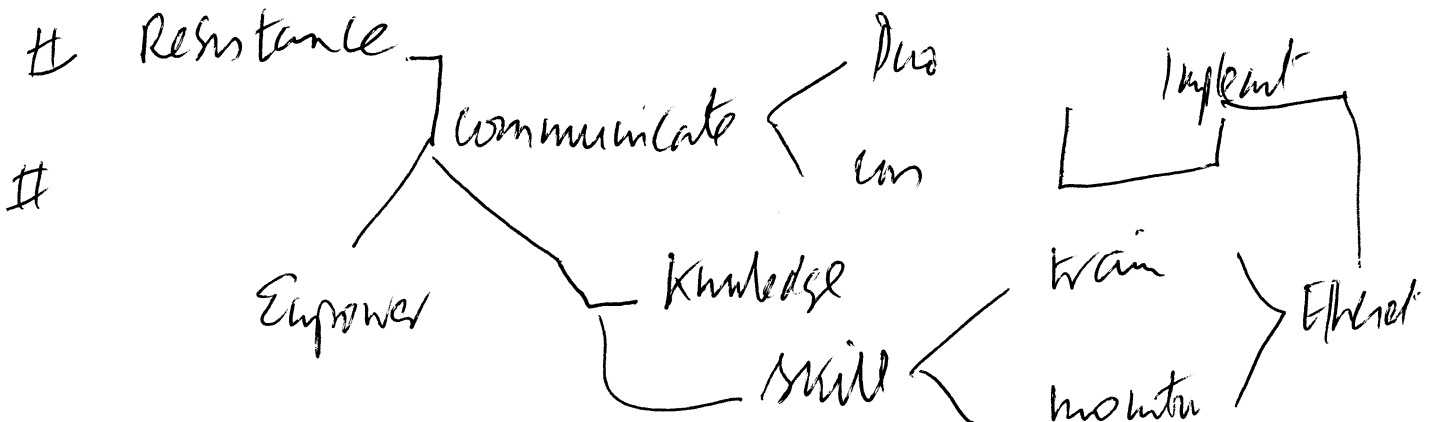 # Resistance
communicate
Pro
con
Implant
#
Empower
Knowledge
skill
train
monitor